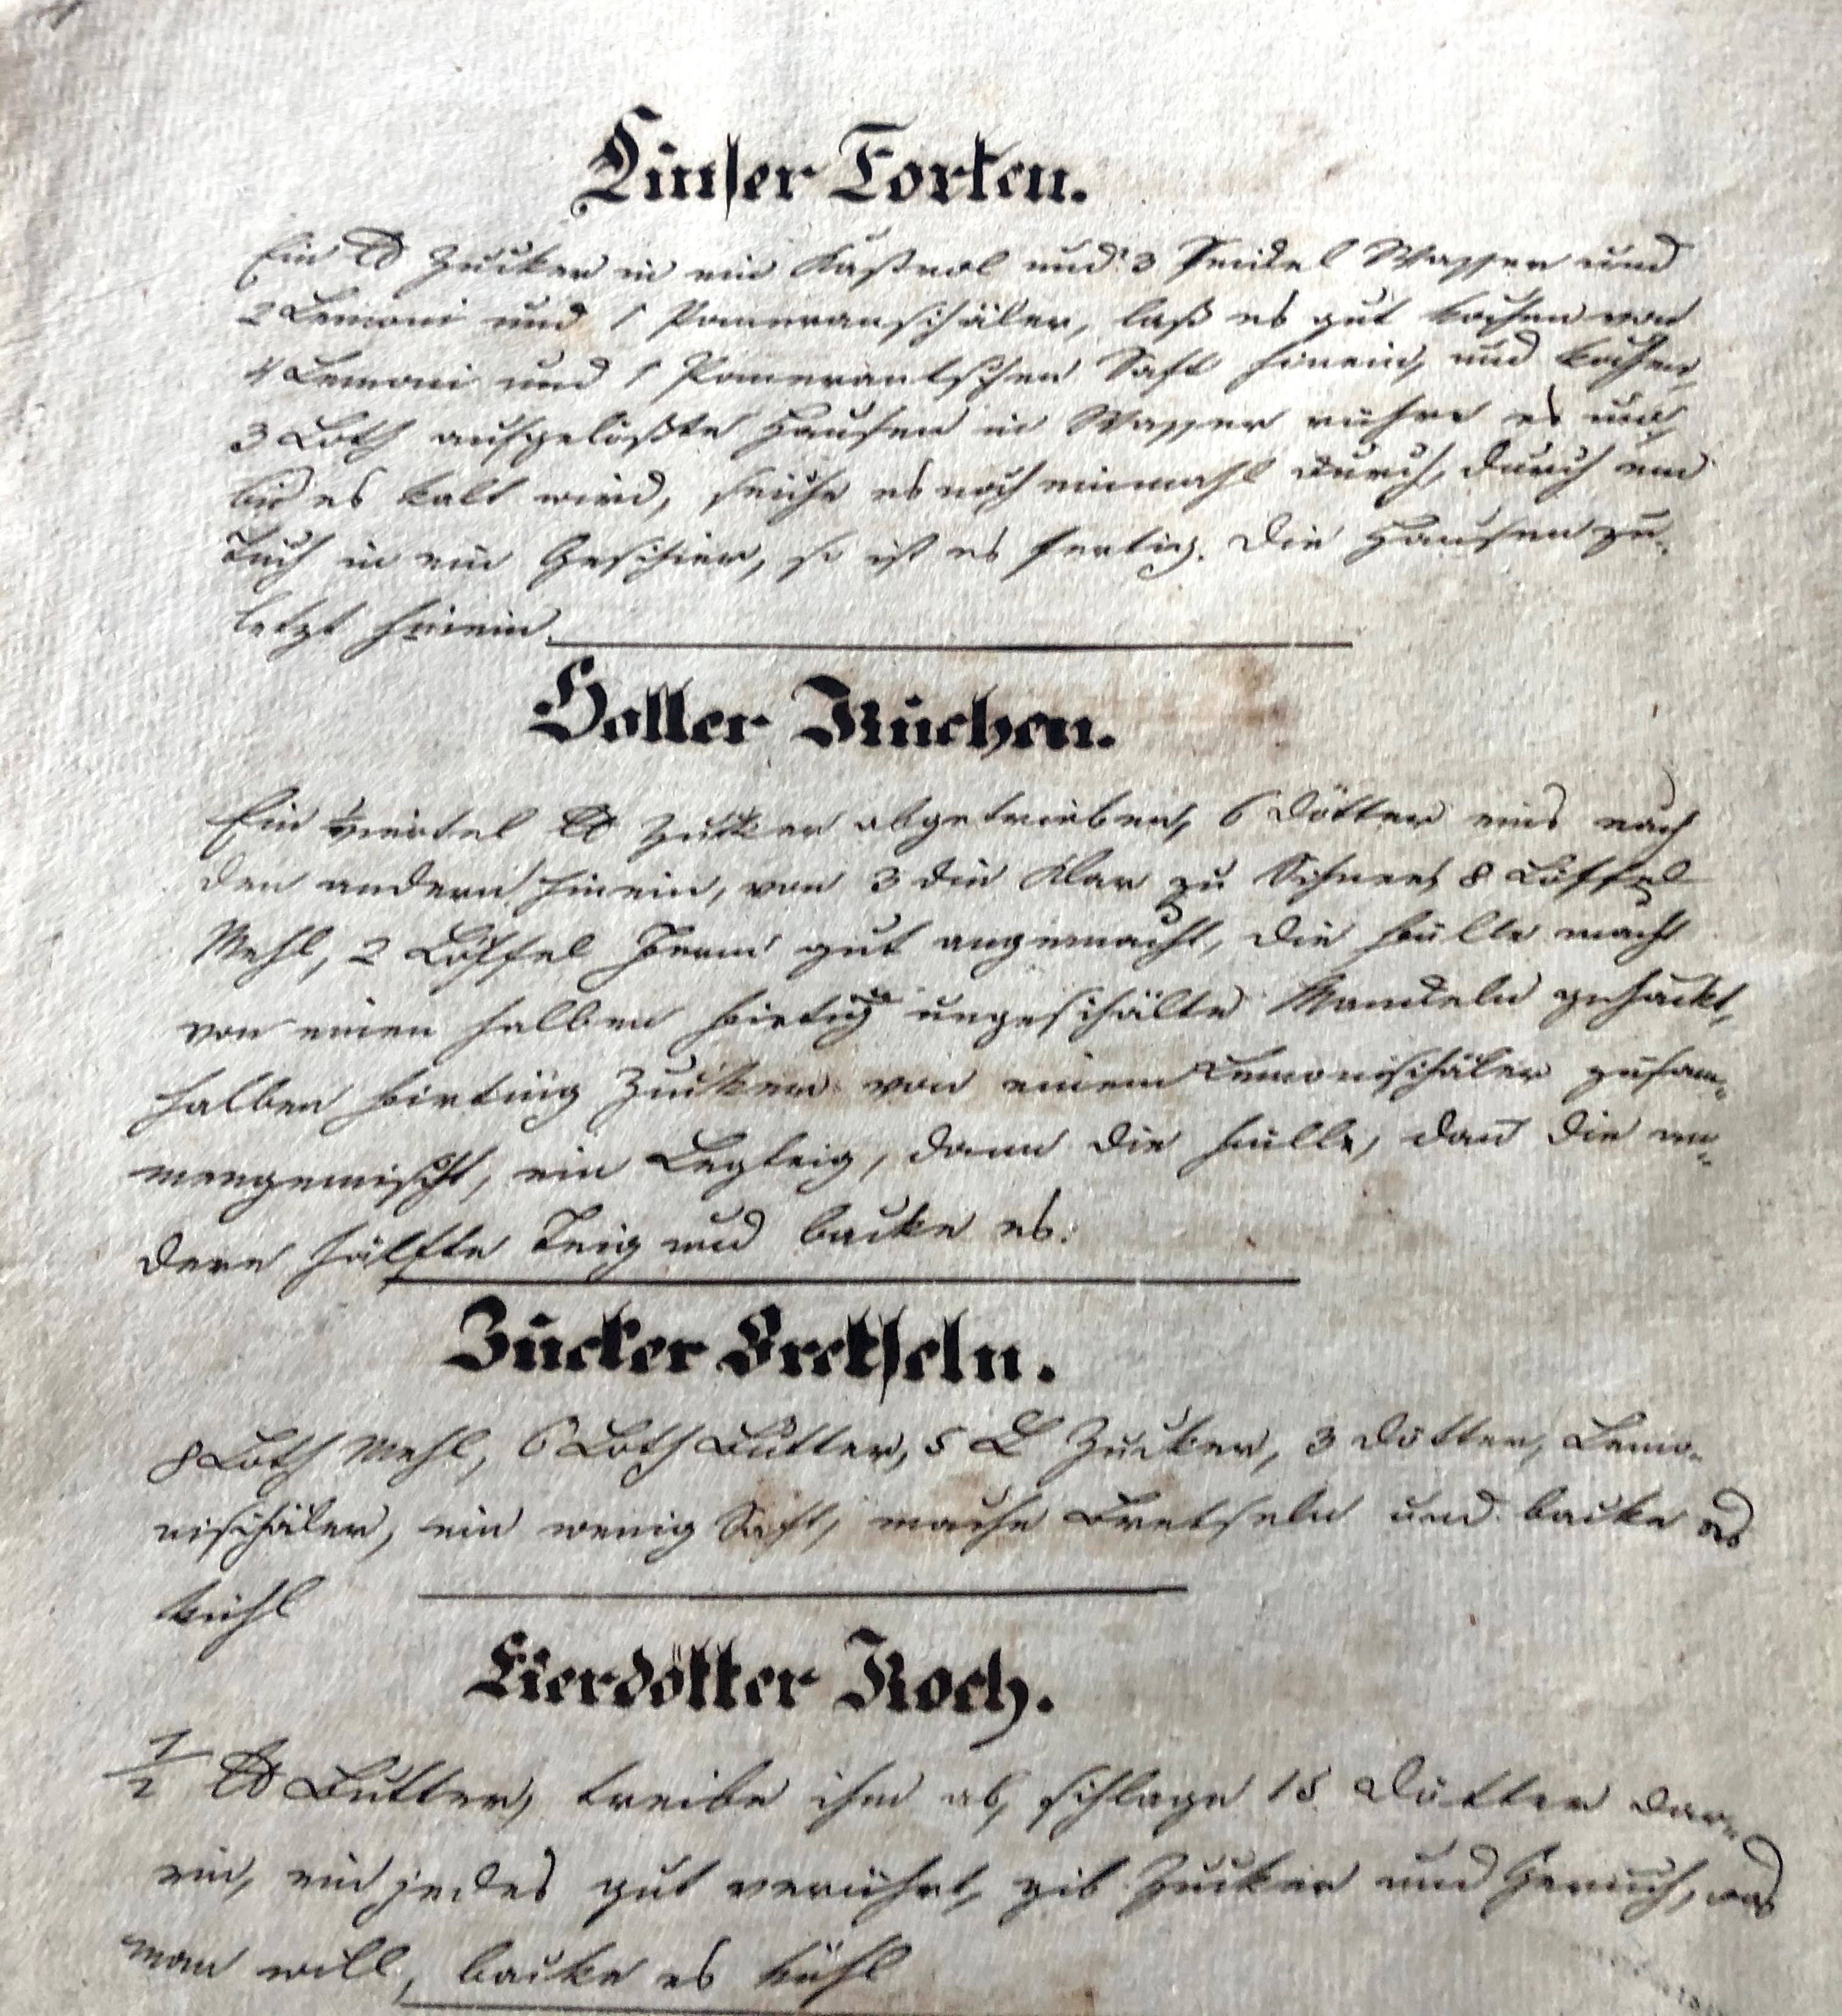 Linser Torten.
Ein ℔ Zucker in ein Kastrol und 3 Seidel Wasser und
2 Lemoni und 1 Pomeranschäler, laß es gut kochen von
4 Lemoni und 1 Pomerantschen Saft hinein, und kochen,
3 Loth aufgelößte Hausen in Wasser rühre es um,
bis es kalt wird, seiche es noch einmahl durch, durch ein
Tuch in ein Geschier, so ist es fertig. Die Hausen zu-
letzt hinein.
Holler Kuchen.
Ein viertel ℔ Zucker abgetrieben, 6 Dötter eins nach
den andern hinein, von 3 die Klar zu Schnee, 8 Löffel
Mehl, 2 Löffel Germ gut angemacht, die Fülle macht
von einen halben Firtig ungeschälte Mandeln gehackt,
halben Firting Zucker von einem Lemonischäler zusam-
mengemischt, ein Legteig, dann die Fülle, dan̄ die an-
dere Hälfte Teig und backe es.
Zucker Bretseln.
8 Loth Mehl, 6 Loth Butter, 5 L Zucker, 3 Dötter, Lemo-
nischäler, ein wenig Saft, mache Bretseln und backe es
kühl
Eierdötter Koch.
1/2 ℔ Butter, treibe ihn ab, schlage 18 Dötter dar-
ein, ein jedes gut verrührt, gib Zucker und Geruch, was
man will, backe es kühl